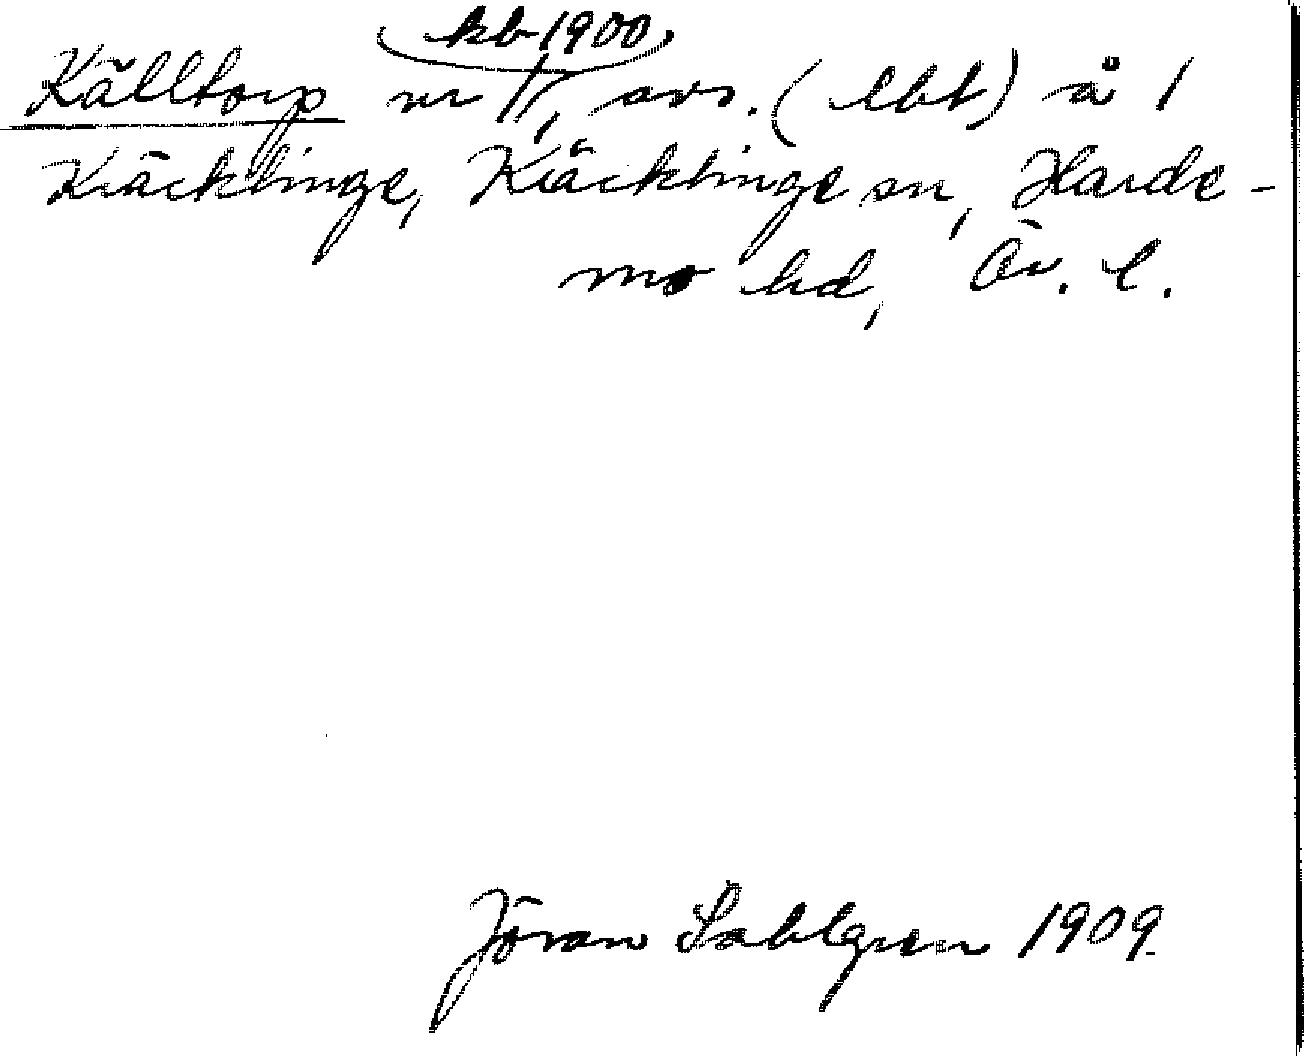 kb 1900.
Källtorp nr 1/1, avs. (lbt) å 1
Kräcklinge, Kräcklinge sn, Harde-
mo hd, Ör. l.
Jöran Sahlgren 1909.